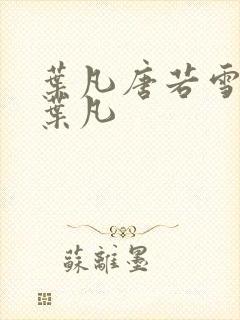 葉凡唐若雪
葉凡
蘇離墨